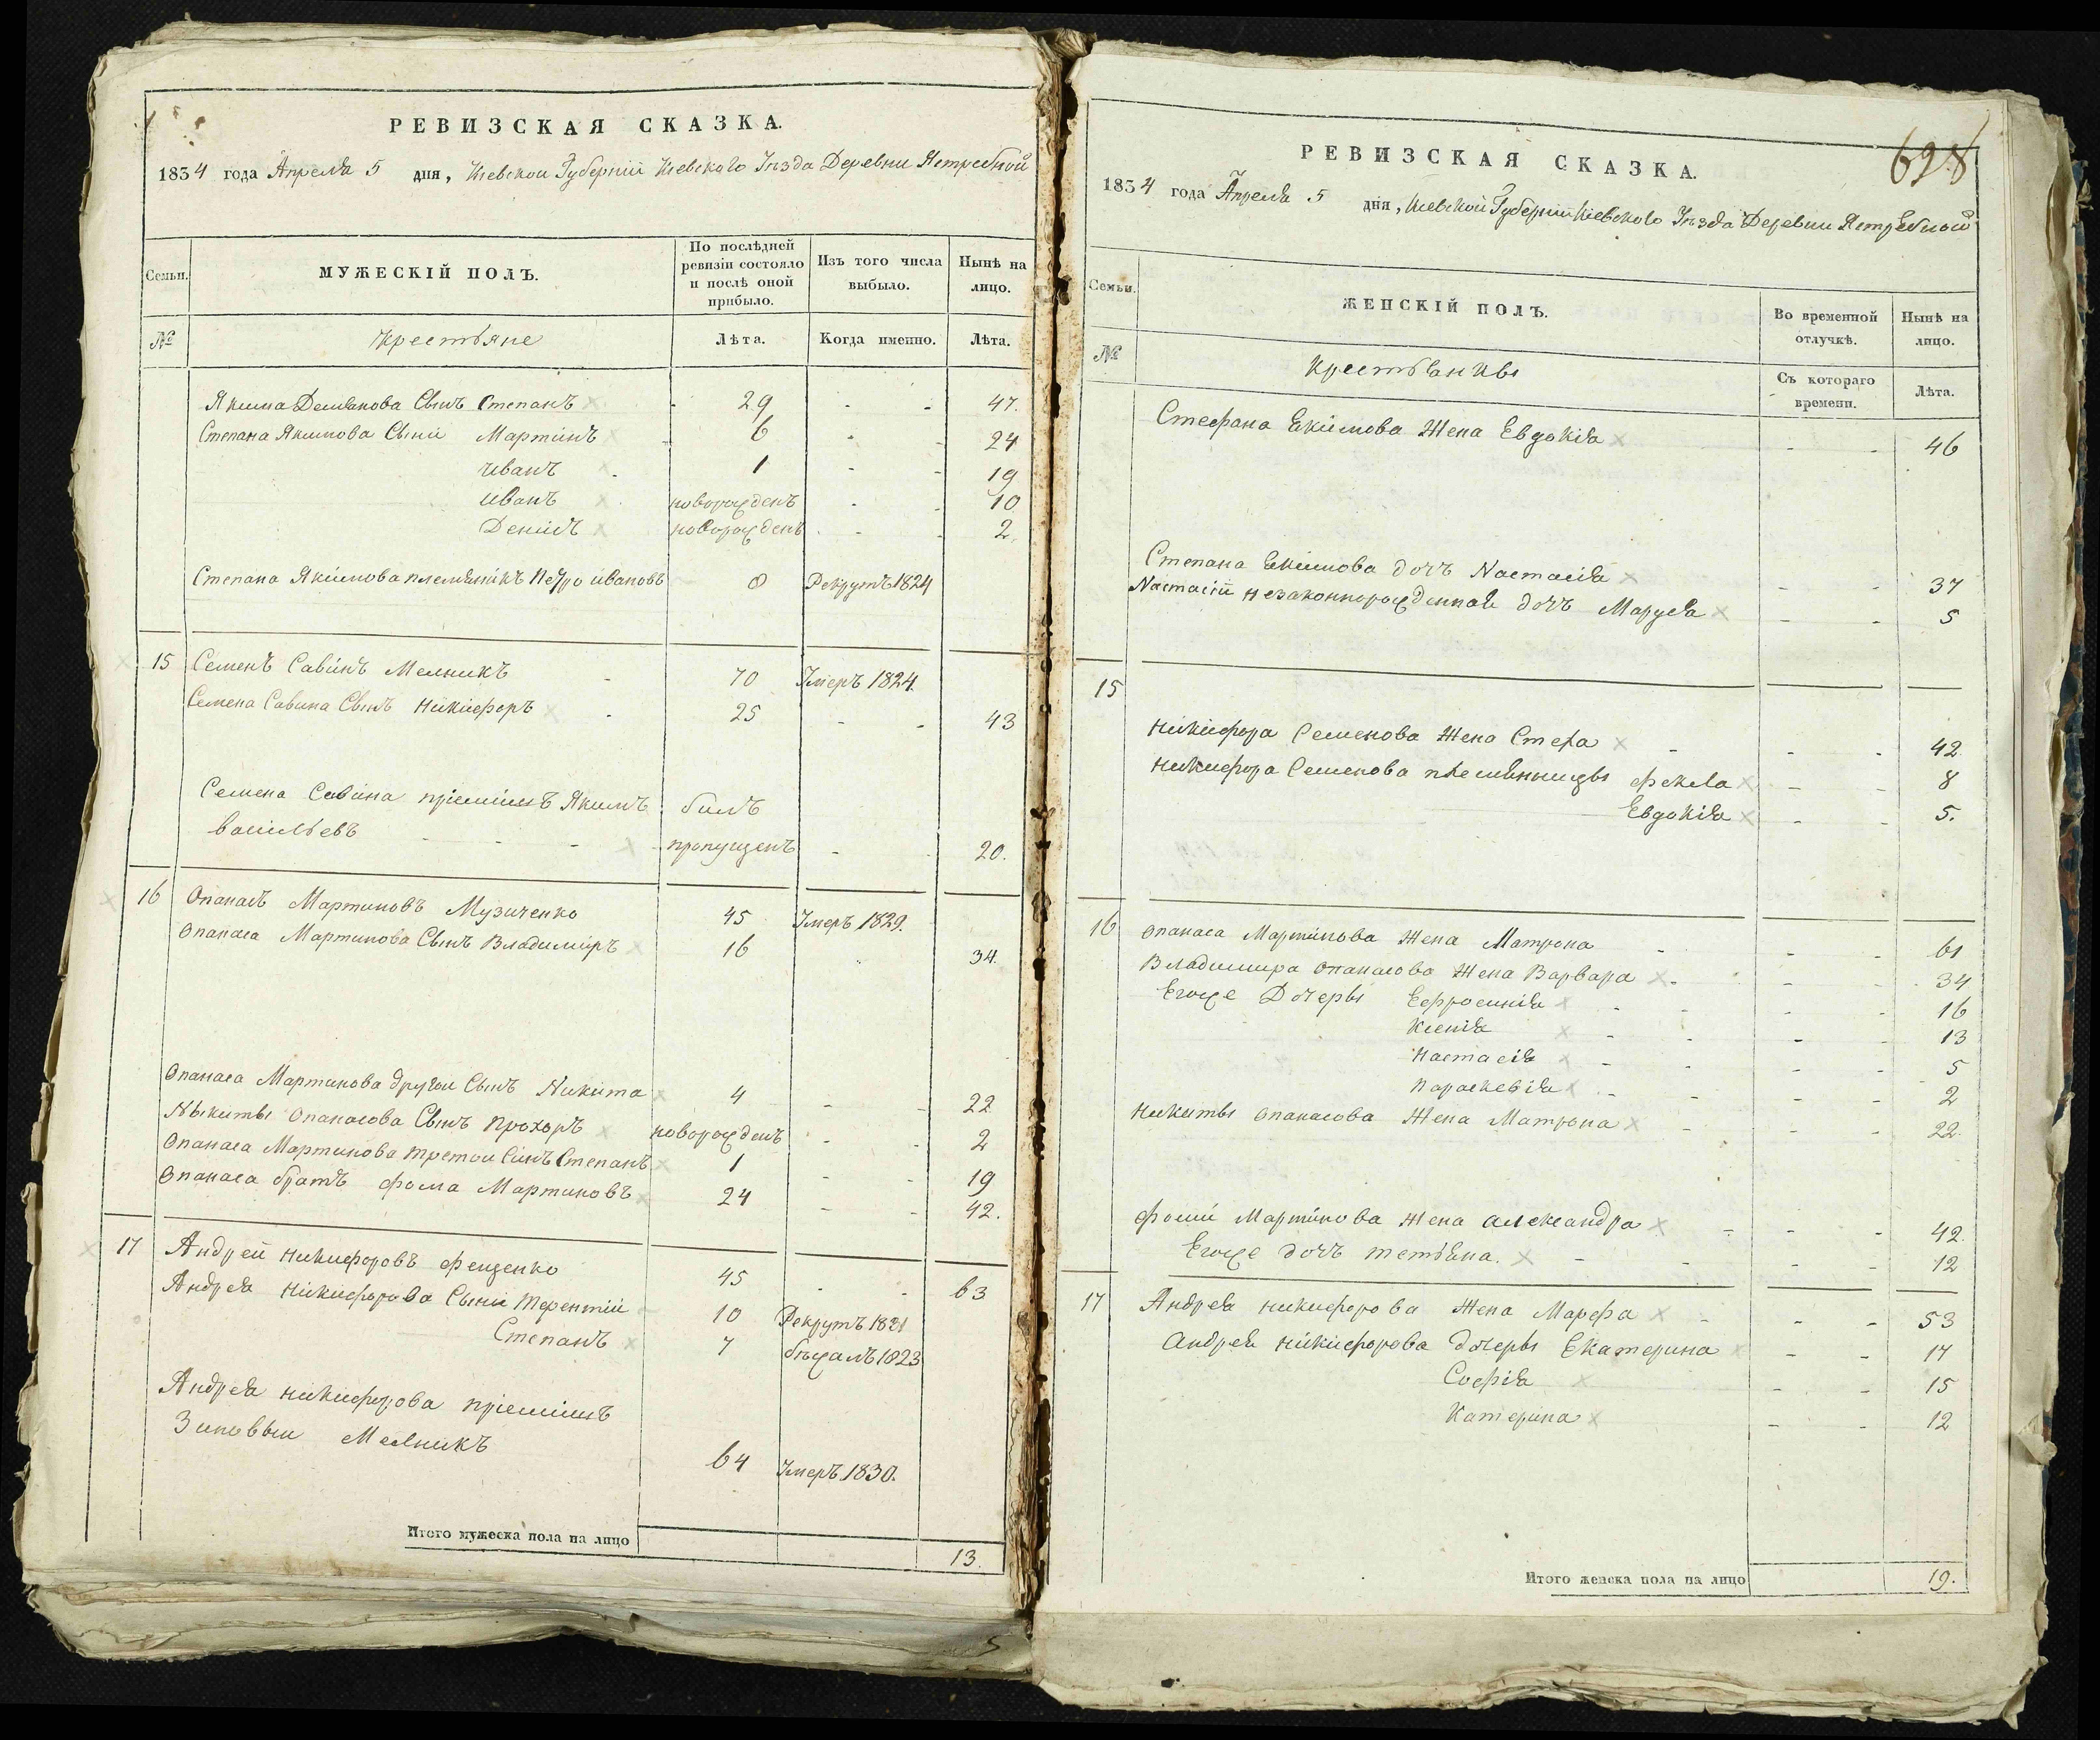 РЕВИЗСКАЯ СКАЗКА.
1834 года Апреля 5 дня, Киевской Губернии Киевского Уезда Деревни Ястребной
Семьи.
МУЖЕСКІЙ ПОЛЪ.
По послѣдней ревизіи состояло и послѣ оной прибыло.
Изъ того числа выбыло.
Нынѣ на лицо.
№ Крестьяне Лѣта. Когда именно. Лѣта.
Якима Демянова Сынъ Степанъ - 29 - - 47.
Степана Якимова Сыни Мартинъ - 6 - - 24
Иванъ - 1 - - 19
Иванъ новорожденъ - - 10
Денисъ новорожденъ - - 2.
Степана Якимова племяникъ Педро ивановъ 0 Рекрутъ 1824
15 Семенъ Савинъ Мелникъ - 70 Умеръ 1824.
Семена Савина Сынъ Никифоръ - 25 - - 43
Семена Савина пріемишъ Якимъ билъ
васильевъ - - - пропущенъ - - 20.
16 Опанасъ Мартиновъ Музиченко 45 Умеръ 1829.
Опанаса Мартинова Сынъ Владимиръ 16 34.
Опанаса Мартинова другои Сынъ Никита 4 - - 22
Ныкиты Опанасова Сынъ Прохоръ новорожденъ - - 2
Опанаса Мартинова третои Синъ Степанъ 1 - - 19
Опанаса братъ фома Мартиновъ 24 - - 42.
17 Андрей Никифоровъ фещенко 45 - - 63
Андрея Никифорова Сыни Терентіи 10 Рекрутъ 1821
Степанъ 7 бѣжалъ 1823
Андрея Никифорова пріемишъ
Зиновьи Мелникъ 64 Умеръ 1830.
Итого мужеска пола на лицо 13.
5
628
РЕВИЗСКАЯ СКАЗКА.
1834 года Апреля 5 дня, Киевской Губерніи Кіевского Уѣзда Деревни Ястребной
Семьи.
ЖЕНСКІЙ ПОЛЪ.
Во временной отлучкѣ.
Нынѣ на лицо.
№ Крестьянкы Съ котораго времени. Лѣта.
Стефана Екимова Жена Евдокія - - 46
Степана Екимова дочъ Настасія - - 37
Настасіи незаконнорожденная дочъ Маруся - - 5
15
Никифора Семенова Жена Стеха - - - 42
Никифора Семенова племянницы фекла - - 8
Евдокія - - 5.
16 Опанаса Мартинова Жена Матрона - - - 61
Владимира Опанасова Жена Варвара - - - 34
Егоже Дочеры Ефросинія - - - - 16
Ксенія - - - - 13
Настасія - - - - 5
Параскевія - - - - 2
Никиты Опанасова Жена Матрона - - - 22
фоми Мартинова Жена Александра - - - 42.
Егоже дочъ Тетяна. - - - - 12
17 Андрея Никифорова Жена Марфа - - - 53
Андрея Никифорова дочеры Екатерина - - 17
Софія - - 15
Катерина - - 12
Итого женска пола на лицо 19.